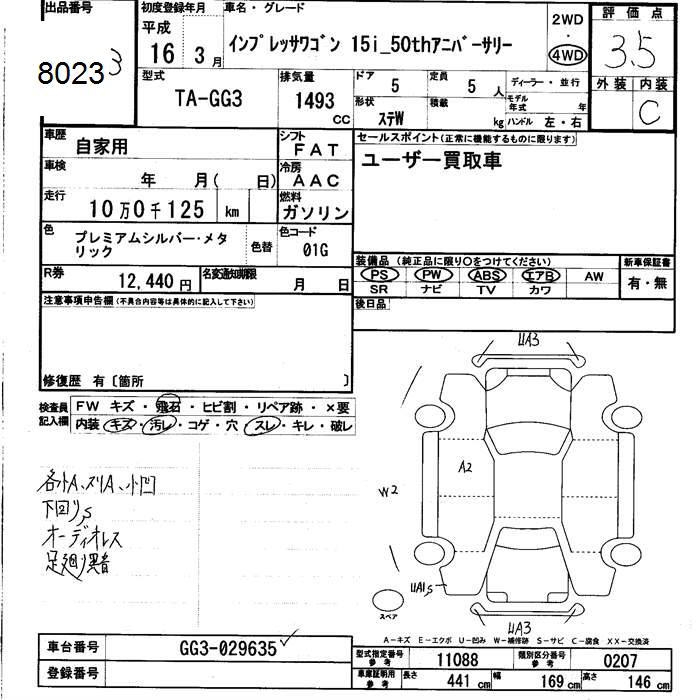 出品番号
80233
初度登録年月
平成
16 3月
車名・グレード
インプレッサワゴン 15i_50thアニバーサリー
2WD
・
4WD
評価点
3.5
外装 内装
C
型式
TA-GG3
排気量
1493
CC
ドア
5
定員
5 人
ディーラー・並行
形状
ステW
積載
kg
モデル年式 年
ハンドル 左・右
車歴
自家用
シフト
FAT
車検
年 月( 日)
冷房
AAC
走行
10万0千125 km
燃料
ガソリン
色
プレミアムシルバー・メタ
リック
色替
色コード
01G
R券
12,440円
名変通知期限
月 日
セールスポイント(正常に機能するものに限ります)
ユーザー買取車
装備品(純正品に限り〇をつけてください)
PS PW ABS エアB AW
SR ナビ TV カワ
新車保証書
有・無
後日品
注意事項申告欄(不具合内容等は具体的に記入して下さい)
修復歴 有〔箇所 〕
検査員
記入欄
FW キズ・飛石・ヒビ割・リペア跡・×要
内装・キズ・汚レ・コゲ・穴・スレ・キレ・破レ
各外A、スリA、小凹
下回りS
オーディオレス
足廻り異音
UA3
A2
W2
UA1S
スペア
UA3
A-キズ E-エクボ U-凹み W-補修跡 S-サビ C-腐食 XX-交換済
車台番号
GG3-029635
登録番号
型式指定番号
参考
11088
類別区分番号
参考
0207
車庫証明用
参考
長さ 441 cm
幅 169 cm
高さ 146 cm